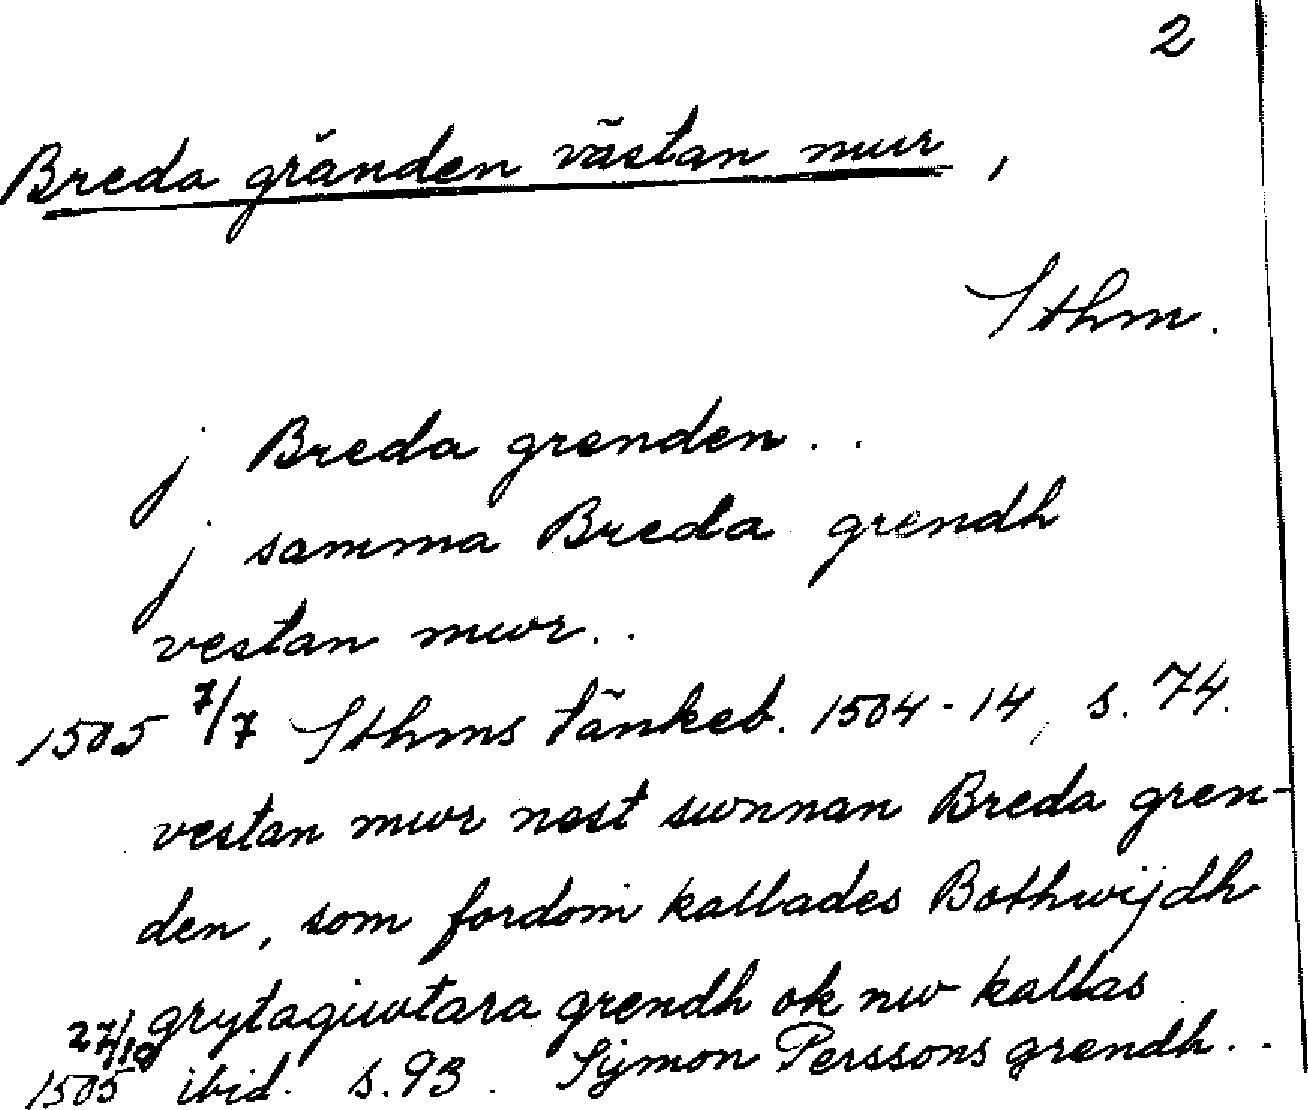 2
Breda gränden västan mur,
Sthm.
j Breda grenden..
j samma Breda grendh
vestan mwr..
1505 7/7 Sthms tänkeb. 1504-14, s. 74.
vestan mwr nest swnnan Breda gren-
den, som fordom kallades Bothwijdh
grytagiwtara grendh ok nw kallas
27/10
1505 ibid. s. 93. Symon Perssons grendh..